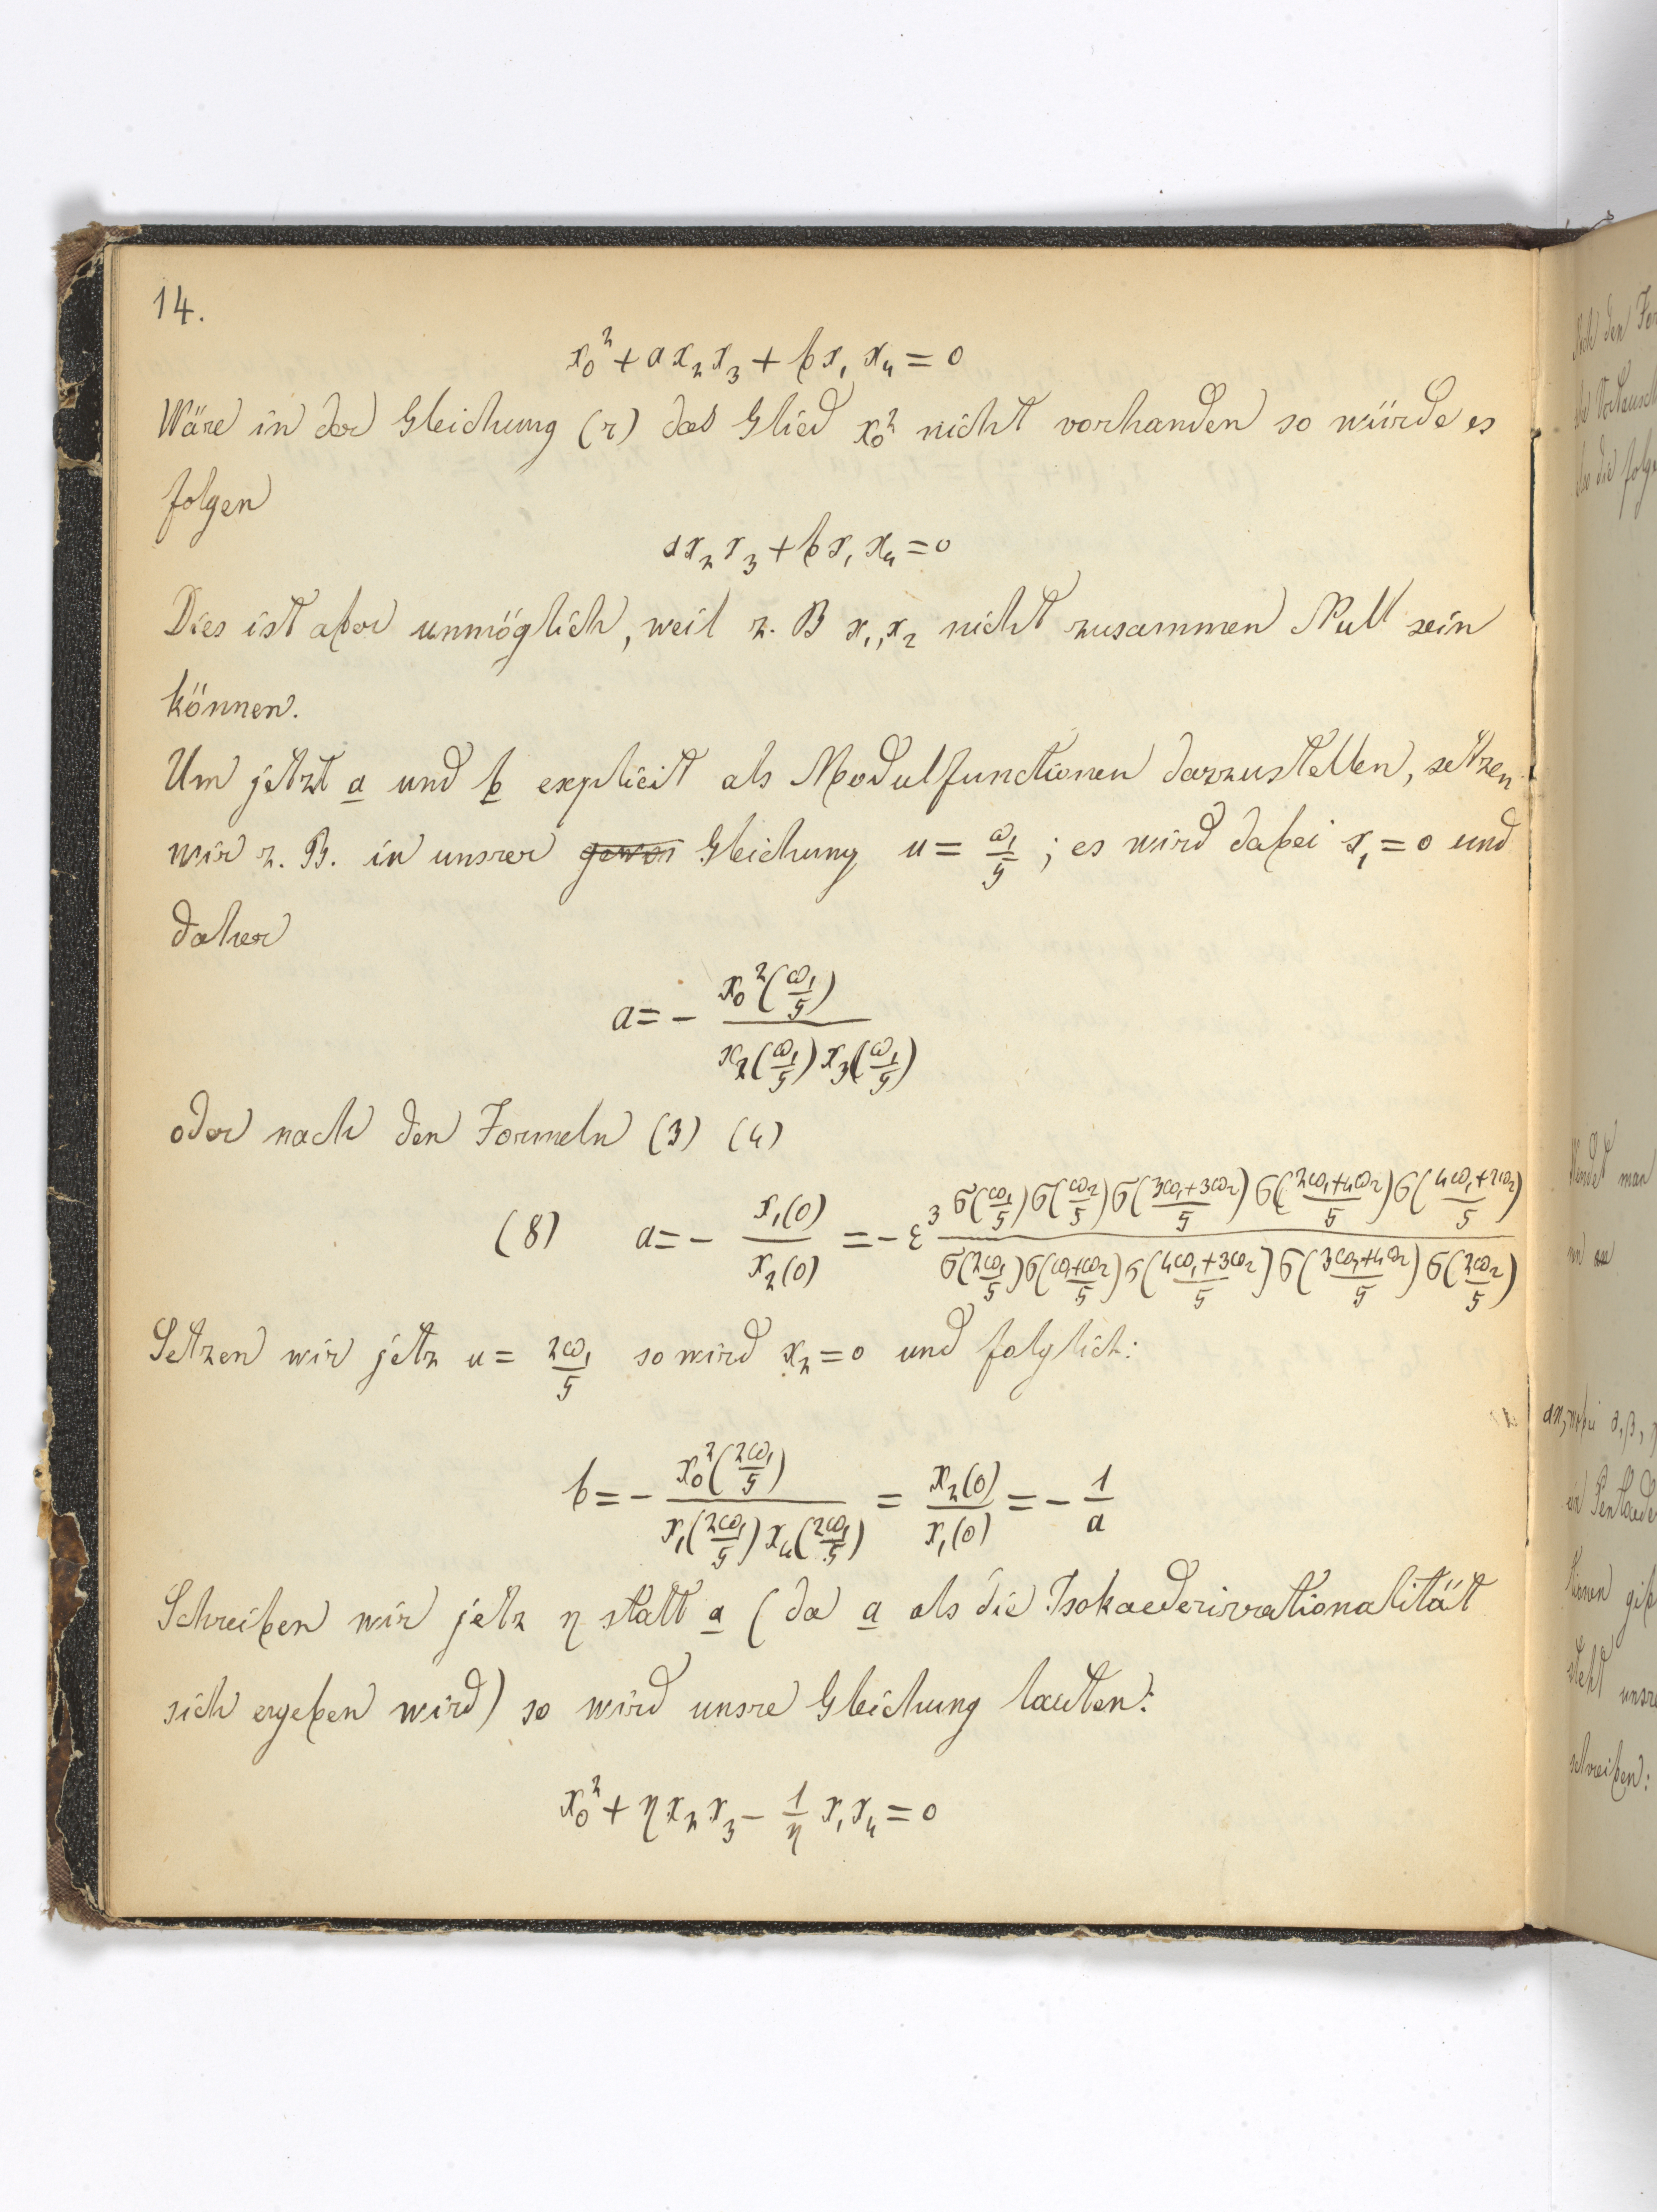 14.
x₀² + a x₂ x₃ + b x₁ x₄ = 0
Wäre in der Gleichung (r) das Glied x₀² nicht vorhanden so würde es
folgen
a x₂ x₃ + b x₁ x₄ = 0
Dies ist aber unmöglich, weil z. B x₁, x₂ nicht zusammen Null sein
können.
Um jetzt a und b explicit als Modulfunctionen darzustellen, setzen
wir z. B. in unsrer Gleichung u = ω₁/5 ; es wird dabei x₁ = 0 und
daher
a = - x₀²(ω₁/5) / x₂(ω₁/5) x₃(ω₁/5)
oder nach den Formeln (3) (4)
(8) a = - x₁(0)/x₂(0) = - ε³ σ(ω₁/5) σ(ω₂/5) σ((3ω₁+3ω₂)/5) σ((2ω₁+4ω₂)/5) σ((4ω₁+2ω₂)/5) / σ(2ω₁/5) σ((ω₁+ω₂)/5) σ((4ω₁+3ω₂)/5) σ((3ω₁+4ω₂)/5) σ(2ω₂/5)
Setzen wir jetz u = 2ω₁/5 so wird x₂ = 0 und folglich:
b = - x₀²(2ω₁/5) / x₁(2ω₁/5) x₄(2ω₁/5) = x₂(0)/x₁(0) = - 1/a
Schreiben wir jetz η statt a (da a als die Isokaederirrationalität
sich ergeben wird) so wird unsre Gleichung lauten:
x₀² + η x₂ x₃ - 1/η x₁ x₄ = 0